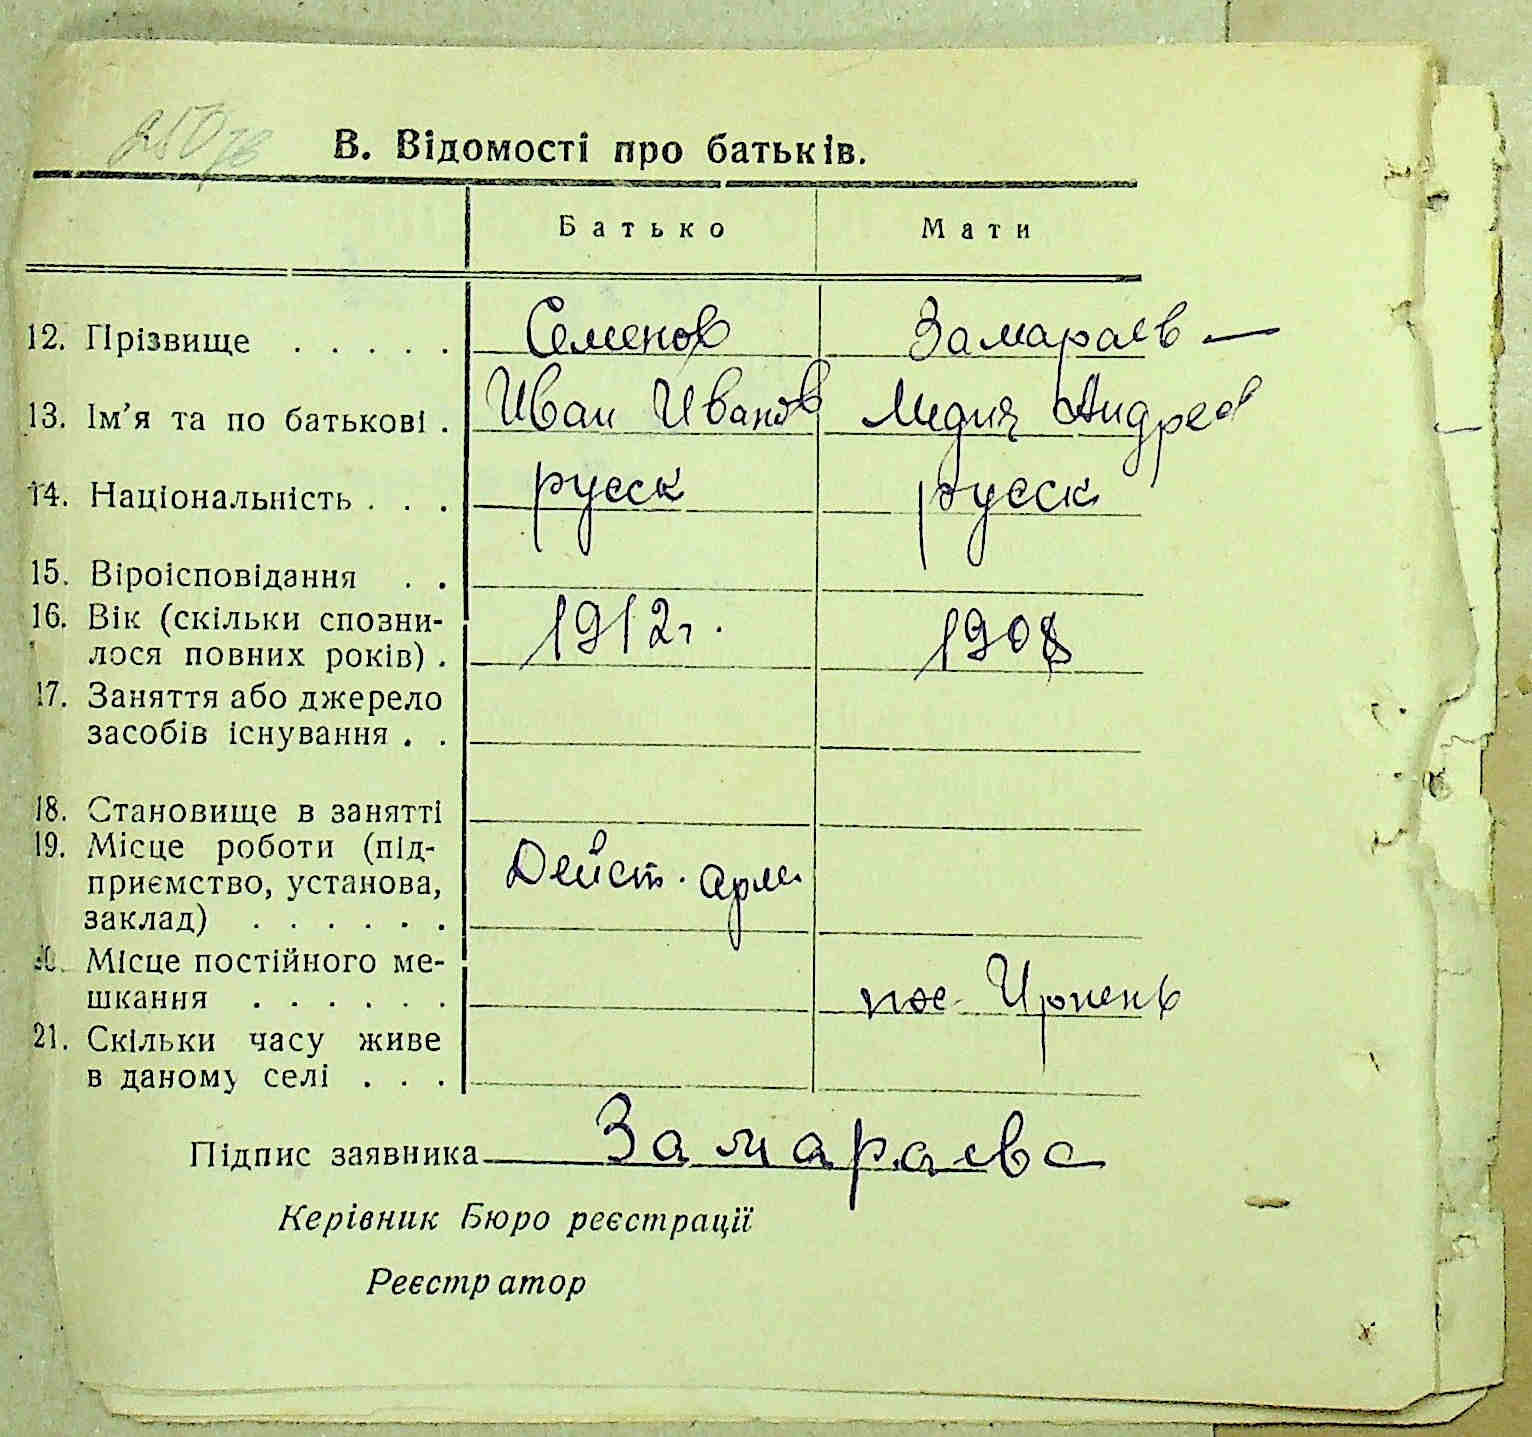 250зв
В. Відомості про батьків.
Батько Мати
12. Прізвище . . . . . Семенов Замараев —
13. Ім'я та по батькові . Иван Иванов Лидия Андреев
14. Національність . . . русск русск
15. Віроісповідання . .
16. Вік (скільки спозни-
лося повних років) . 1912г. 1908
17. Заняття або джерело
засобів існування . .
18. Становище в занятті
19. Місце роботи (під-
приємство, установа,
заклад) . . . . . . Дейст. арм.
20. Місце постійного ме-
шкання . . . . . . Ирпень
21. Скільки часу живе
в даному селі . . .
Підпис заявника Замараева
Керівник Бюро реєстрації
Реєстратор